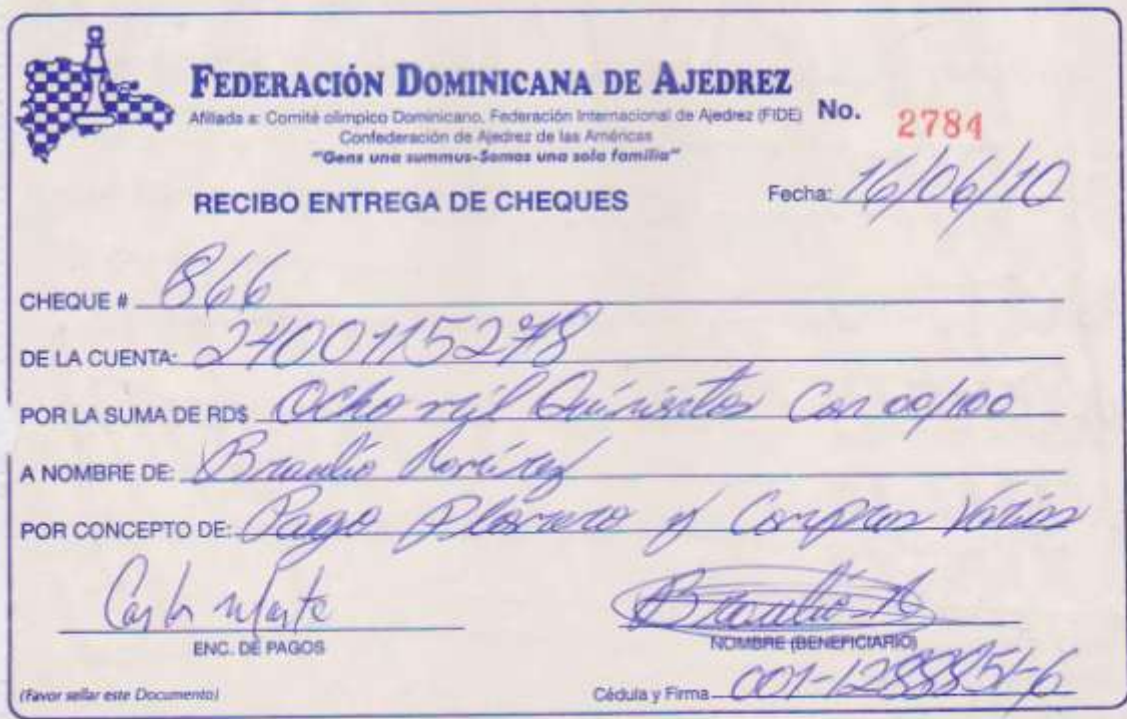 FEDERACIÓN DOMINICANA DE AJEDREZ
Afiliada a: Comité olímpico Dominicano, Federación Internacional de Ajedrez (FIDE)
No. 2784
Confederación de Ajedrez de las Américas
"Gens una summus-Somos una sola familia"
RECIBO ENTREGA DE CHEQUES
Fecha: 16/06/10
CHEQUE # 866
DE LA CUENTA: 24001152778
POR LA SUMA DE RD$ Ocho mil Quinientos Con 00/100
A NOMBRE DE: Braulio Ramírez
POR CONCEPTO DE: Pago Plomero y Compras Varias
Carlos Marte
Braulio R
ENC. DE PAGOS
NOMBRE (BENEFICIARIO)
(Favor sellar este Documento)
Cédula y Firma 001-1288851-6